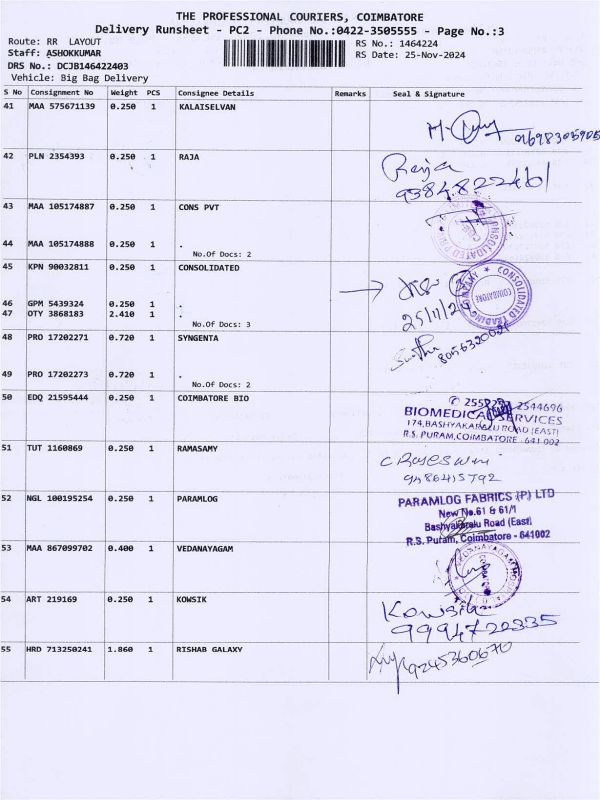 THE PROFESSIONAL COURIERS, COIMBATORE
Delivery Runsheet - PC2 - Phone No.:0422-3505555 - Page No.:3
Route: RR LAYOUT
RS No.: 1464224
Staff: ASHOKKUMAR
RS Date: 25-Nov-2024
DRS No.: DCJB146422403
Vehicle: Big Bag Delivery
S No Consignment No Weight PCS Consignee Details Remarks Seal & Signature
41 MAA 575671139 0.250 1 KALAISELVAN
42 PLN 2354393 0.250 1 RAJA
Raja
43 MAA 105174887 0.250 1 CONS PVT
44 MAA 105174888 0.250 1 .
No.Of Docs: 2
45 KPN 90032811 0.250 1 CONSOLIDATED
CONSOLIDATED TRADING COMPANY
COIMBATORE
25/11/24
46 GPM 5439324 0.250 1 .
47 OTY 3868183 2.410 1 .
No.Of Docs: 3
48 PRO 17202271 0.720 1 SYNGENTA
49 PRO 17202273 0.720 1 .
No.Of Docs: 2
50 EDQ 21595444 0.250 1 COIMBATORE BIO
2544696
BIOMEDICAL SERVICES
174,BASHYAKARALU ROAD (EAST)
R.S. PURAM,COIMBATORE - 641 002
51 TUT 1160869 0.250 1 RAMASAMY
9486415792
52 NGL 100195254 0.250 1 PARAMLOG
PARAMLOG FABRICS (P) LTD
New No.61 & 61/1
Bashyakaralu Road (East)
R.S. Puram, Coimbatore - 641002
53 MAA 867099702 0.400 1 VEDANAYAGAM
54 ART 219169 0.250 1 KOWSIK
Kowsik
9994722335
55 HRD 713250241 1.860 1 RISHAB GALAXY
9245360670